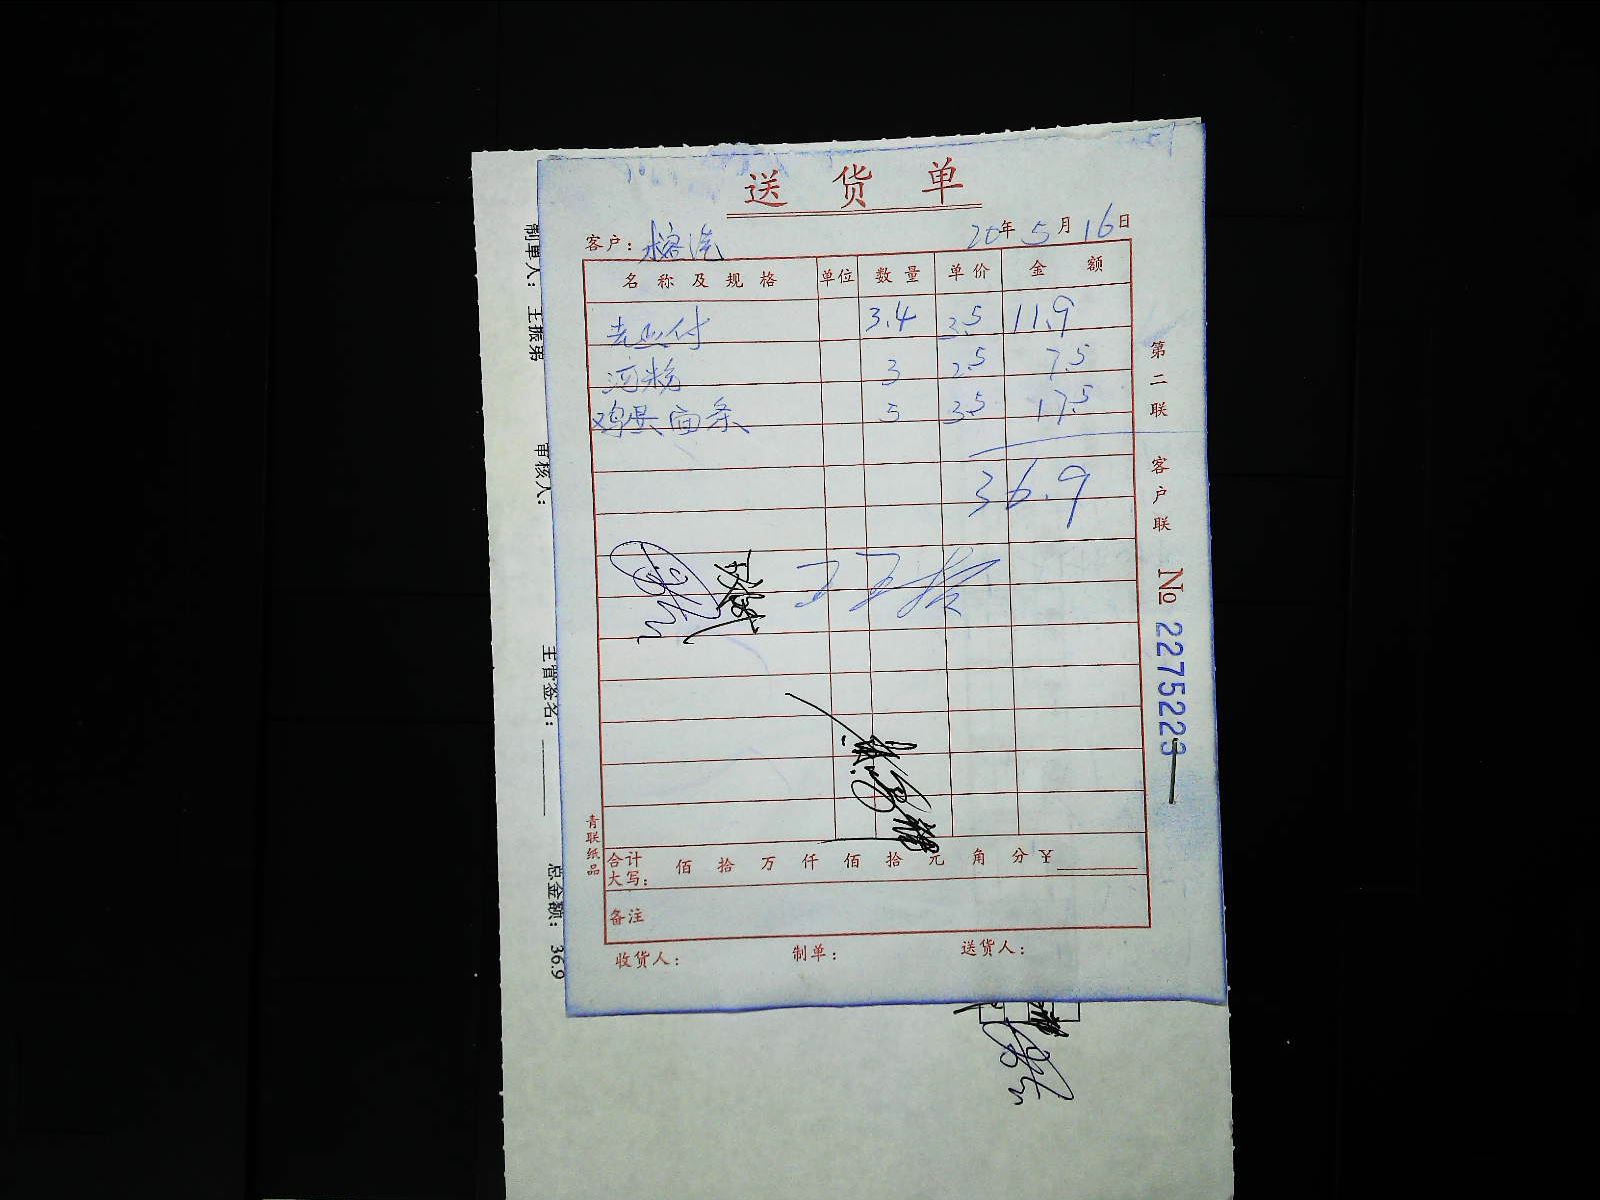 送货单
客户：
20年5月16日
名称及规格 单位 数量 单价 金额
3.4 3.5 11.9
河粉 3 2.5 7.5
鸡蛋面条 5 3.5 17.5
36.9
合计大写： 佰 拾 万 仟 佰 拾 元 角 分 ￥
备注
收货人： 制单： 送货人：
第二联 客户联
No 2275223
青联纸品
制单人： 王振弟
审核人：
主管签名：
总金额： 36.9